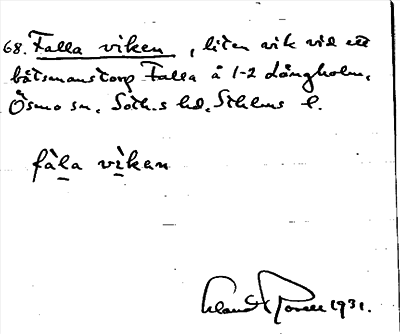 68. Falla viken, liten vik vid ett
båtsmanstorp Falla å 1-2 Långholm.
Ösmo sn. Soth.s hd. Sthlms l.
fàla vìkan
1931.